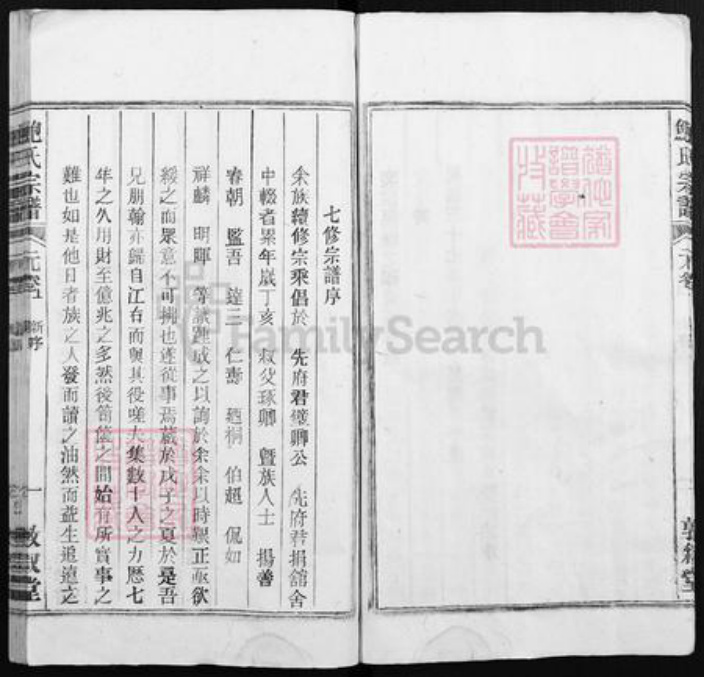 七修宗譜序
余族續修宗乘倡於 先府君璧卿公 先府君捐舘舍
中輟者累年歲丁亥 叔父琢卿 曁族人士 揚善
春朝 監吾 達三 仁壽 廼桐 伯超 侃如
祥麟 明暉 等議踵成之以詢於余余以時艱正亟欲
綏之而眾意不可拂也遂從事焉蕆於戊子之夏於是吾
兄朋翰亦歸自江右而與其役嗟夫集數十人之力歷七
年之久用財至億兆之多然後笥篋之間始有所實事之
難也如是他日者族之人發而讀之油然而益生追遠之
鮑氏宗譜
元卷
新序
一
敦叙堂
鮑氏宗譜
敦叙堂
收藏
譜學會
FamilySearch